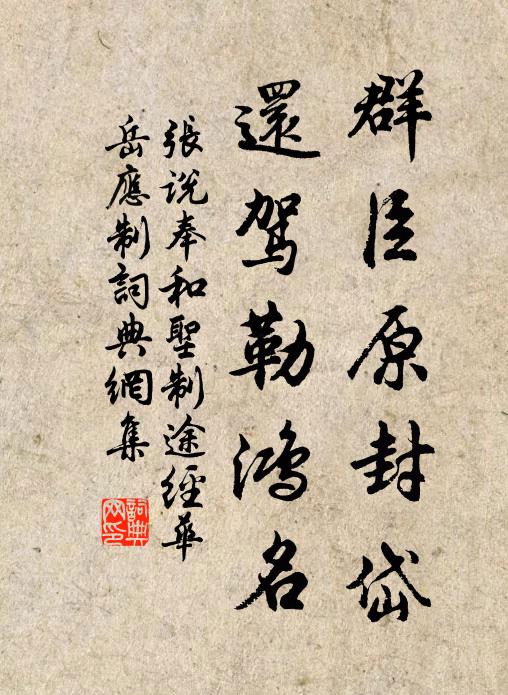 群臣原封岱
還驾勒鸿名
張說奉和聖制途經華
岳應制詞典網集
詞典网印